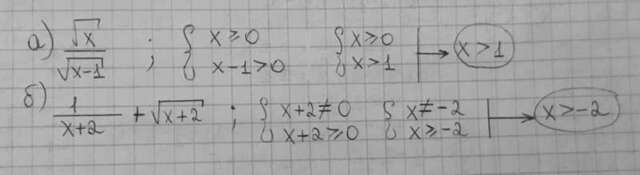 а) √x / √(x-1) ; { x ≥ 0, x-1 > 0 { x ≥ 0, x > 1 |→ x > 1
б) 1/(x+2) + √(x+2) ; { x+2 ≠ 0, x+2 ≥ 0 { x ≠ -2, x ≥ -2 |→ x > -2